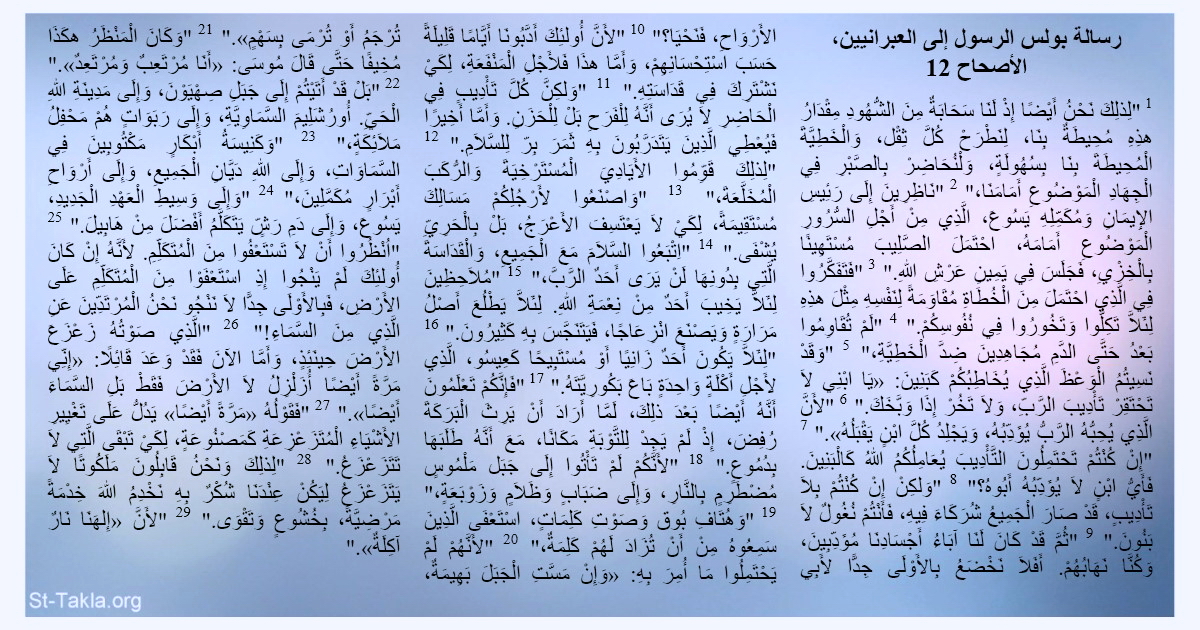 رسالة بولس الرسول إلى العبرانيين،
الأصحاح 12
1 "لِذلِكَ نَحْنُ أَيْضًا إِذْ لَنَا سَحَابَةٌ مِنَ الشُّهُودِ مِقْدَارُ
هذِهِ مُحِيطَةٌ بِنَا، لِنَطْرَحْ كُلَّ ثِقْل، وَالْخَطِيَّةَ
الْمُحِيطَةَ بِنَا بِسُهُولَةٍ، وَلْنُحَاضِرْ بِالصَّبْرِ فِي
الْجِهَادِ الْمَوْضُوعِ أَمَامَنَا،" 2 "نَاظِرِينَ إِلَى رَئِيسِ
الإِيمَانِ وَمُكَمِّلِهِ يَسُوعَ، الَّذِي مِنْ أَجْلِ السُّرُورِ
الْمَوْضُوعِ أَمَامَهُ، احْتَمَلَ الصَّلِيبَ مُسْتَهِينًا
بِالْخِزْيِ، فَجَلَسَ فِي يَمِينِ عَرْشِ اللهِ." 3 "فَتَفَكَّرُوا
فِي الَّذِي احْتَمَلَ مِنَ الْخُطَاةِ مُقَاوَمَةً لِنَفْسِهِ مِثْلَ هذِهِ
لِئَلاَّ تَكِلُّوا وَتَخُورُوا فِي نُفُوسِكُمْ." 4 "لَمْ تُقَاوِمُوا
بَعْدُ حَتَّى الدَّمِ مُجَاهِدِينَ ضِدَّ الْخَطِيَّةِ،" 5 "وَقَدْ
نَسِيتُمُ الْوَعْظَ الَّذِي يُخَاطِبُكُمْ كَبَنِينَ: «يَا ابْنِي لاَ
تَحْتَقِرْ تَأْدِيبَ الرَّبِّ، وَلاَ تَخُرْ إِذَا وَبَّخَكَ." 6 "لأَنَّ
الَّذِي يُحِبُّهُ الرَّبُّ يُؤَدِّبُهُ، وَيَجْلِدُ كُلَّ ابْنٍ يَقْبَلُهُ»." 7
"إِنْ كُنْتُمْ تَحْتَمِلُونَ التَّأْدِيبَ يُعَامِلُكُمُ اللهُ كَالْبَنِينَ.
فَأَيُّ ابْنٍ لاَ يُؤَدِّبُهُ أَبُوهُ؟" 8 "وَلكِنْ إِنْ كُنْتُمْ بِلاَ
تَأْدِيبٍ، قَدْ صَارَ الْجَمِيعُ شُرَكَاءَ فِيهِ، فَأَنْتُمْ نُغُولٌ لاَ
بَنُونَ." 9 "ثُمَّ قَدْ كَانَ لَنَا آبَاءُ أَجْسَادِنَا مُؤَدِّبِينَ،
وَكُنَّا نَهَابُهُمْ. أَفَلاَ نَخْضَعُ بِالأَوْلَى جِدًّا لأَبِي
الأَرْوَاحِ، فَنَحْيَا؟" 10 "لأَنَّ أُولئِكَ أَدَّبُونَا أَيَّامًا قَلِيلَةً
حَسَبَ اسْتِحْسَانِهِمْ، وَأَمَّا هذَا فَلأَجْلِ الْمَنْفَعَةِ، لِكَيْ
نَشْتَرِكَ فِي قَدَاسَتِهِ." 11 "وَلكِنَّ كُلَّ تَأْدِيبٍ فِي
الْحَاضِرِ لاَ يُرَى أَنَّهُ لِلْفَرَحِ بَلْ لِلْحَزَنِ. وَأَمَّا أَخِيرًا
فَيُعْطِي الَّذِينَ يَتَدَرَّبُونَ بِهِ ثَمَرَ بِرّ لِلسَّلاَمِ." 12
"لِذلِكَ قَوِّمُوا الأَيَادِيَ الْمُسْتَرْخِيَةَ وَالرُّكَبَ
الْمُخَلَّعَةَ،" 13 "وَاصْنَعُوا لأَرْجُلِكُمْ مَسَالِكَ
مُسْتَقِيمَةً، لِكَيْ لاَ يَعْتَسِفَ الأَعْرَجُ، بَلْ بِالْحَرِيِّ
يُشْفَى." 14 "اِتْبَعُوا السَّلاَمَ مَعَ الْجَمِيعِ، وَالْقَدَاسَةَ
الَّتِي بِدُونِهَا لَنْ يَرَى أَحَدٌ الرَّبَّ،" 15 "مُلاَحِظِينَ
لِئَلاَّ يَخِيبَ أَحَدٌ مِنْ نِعْمَةِ اللهِ. لِئَلاَّ يَطْلُعَ أَصْلُ
مَرَارَةٍ وَيَصْنَعَ انْزِعَاجًا، فَيَتَنَجَّسَ بِهِ كَثِيرُونَ." 16
"لِئَلاَّ يَكُونَ أَحَدٌ زَانِيًا أَوْ مُسْتَبِيحًا كَعِيسُو، الَّذِي
لأَجْلِ أَكْلَةٍ وَاحِدَةٍ بَاعَ بَكُورِيَّتَهُ." 17 "فَإِنَّكُمْ تَعْلَمُونَ
أَنَّهُ أَيْضًا بَعْدَ ذلِكَ، لَمَّا أَرَادَ أَنْ يَرِثَ الْبَرَكَةَ
رُفِضَ، إِذْ لَمْ يَجِدْ لِلتَّوْبَةِ مَكَانًا، مَعَ أَنَّهُ طَلَبَهَا
بِدُمُوعٍ." 18 "لأَنَّكُمْ لَمْ تَأْتُوا إِلَى جَبَل مَلْمُوسٍ
مُضْطَرِمٍ بِالنَّارِ، وَإِلَى ضَبَابٍ وَظَلاَمٍ وَزَوْبَعَةٍ،"
19 "وَهُتَافِ بُوق وَصَوْتِ كَلِمَاتٍ، اسْتَعْفَى الَّذِينَ
سَمِعُوهُ مِنْ أَنْ تُزَادَ لَهُمْ كَلِمَةٌ،" 20 "لأَنَّهُمْ لَمْ
يَحْتَمِلُوا مَا أُمِرَ بِهِ: «وَإِنْ مَسَّتِ الْجَبَلَ بَهِيمَةٌ،
تُرْجَمُ أَوْ تُرْمَى بِسَهْمٍ»." 21 "وَكَانَ الْمَنْظَرُ هكَذَا
مُخِيفًا حَتَّى قَالَ مُوسَى: «أَنَا مُرْتَعِبٌ وَمُرْتَعِدٌ»."
22 "بَلْ قَدْ أَتَيْتُمْ إِلَى جَبَلِ صِهْيَوْنَ، وَإِلَى مَدِينَةِ اللهِ
الْحَيِّ. أُورُشَلِيمَ السَّمَاوِيَّةِ، وَإِلَى رَبَوَاتٍ هُمْ مَحْفِلُ
مَلاَئِكَةٍ،" 23 "وَكَنِيسَةُ أَبْكَارٍ مَكْتُوبِينَ فِي
السَّمَاوَاتِ، وَإِلَى اللهِ دَيَّانِ الْجَمِيعِ، وَإِلَى أَرْوَاحِ
أَبْرَارٍ مُكَمَّلِينَ،" 24 "وَإِلَى وَسِيطِ الْعَهْدِ الْجَدِيدِ،
يَسُوعَ، وَإِلَى دَمِ رَشٍّ يَتَكَلَّمُ أَفْضَلَ مِنْ هَابِيلَ." 25
"اُنْظُرُوا أَنْ لاَ تَسْتَعْفُوا مِنَ الْمُتَكَلِّمِ. لأَنَّهُ إِنْ كَانَ
أُولئِكَ لَمْ يَنْجُوا إِذِ اسْتَعْفَوْا مِنَ الْمُتَكَلِّمِ عَلَى
الأَرْضِ، فَبِالأَوْلَى جِدًّا لاَ نَنْجُو نَحْنُ الْمُرْتَدِّينَ عَنِ
الَّذِي مِنَ السَّمَاءِ!" 26 "الَّذِي صَوْتُهُ زَعْزَعَ
الأَرْضَ حِينَئِذٍ، وَأَمَّا الآنَ فَقَدْ وَعَدَ قَائِلًا: «إِنِّي
مَرَّةً أَيْضًا أُزَلْزِلُ لاَ الأَرْضَ فَقَطْ بَلِ السَّمَاءَ
أَيْضًا»." 27 "فَقَوْلُهُ «مَرَّةً أَيْضًا» يَدُلُّ عَلَى تَغْيِيرِ
الأَشْيَاءِ الْمُتَزَعْزِعَةِ كَمَصْنُوعَةٍ، لِكَيْ تَبْقَى الَّتِي لاَ
تَتَزَعْزَعُ." 28 "لِذلِكَ وَنَحْنُ قَابِلُونَ مَلَكُوتًا لاَ
يَتَزَعْزَعُ لِيَكُنْ عِنْدَنَا شُكْرٌ بِهِ نَخْدِمُ اللهَ خِدْمَةً
مَرْضِيَّةً، بِخُشُوعٍ وَتَقْوَى." 29 "لأَنَّ «إِلهَنَا نَارٌ
آكِلَةٌ»."
St-Takla.org